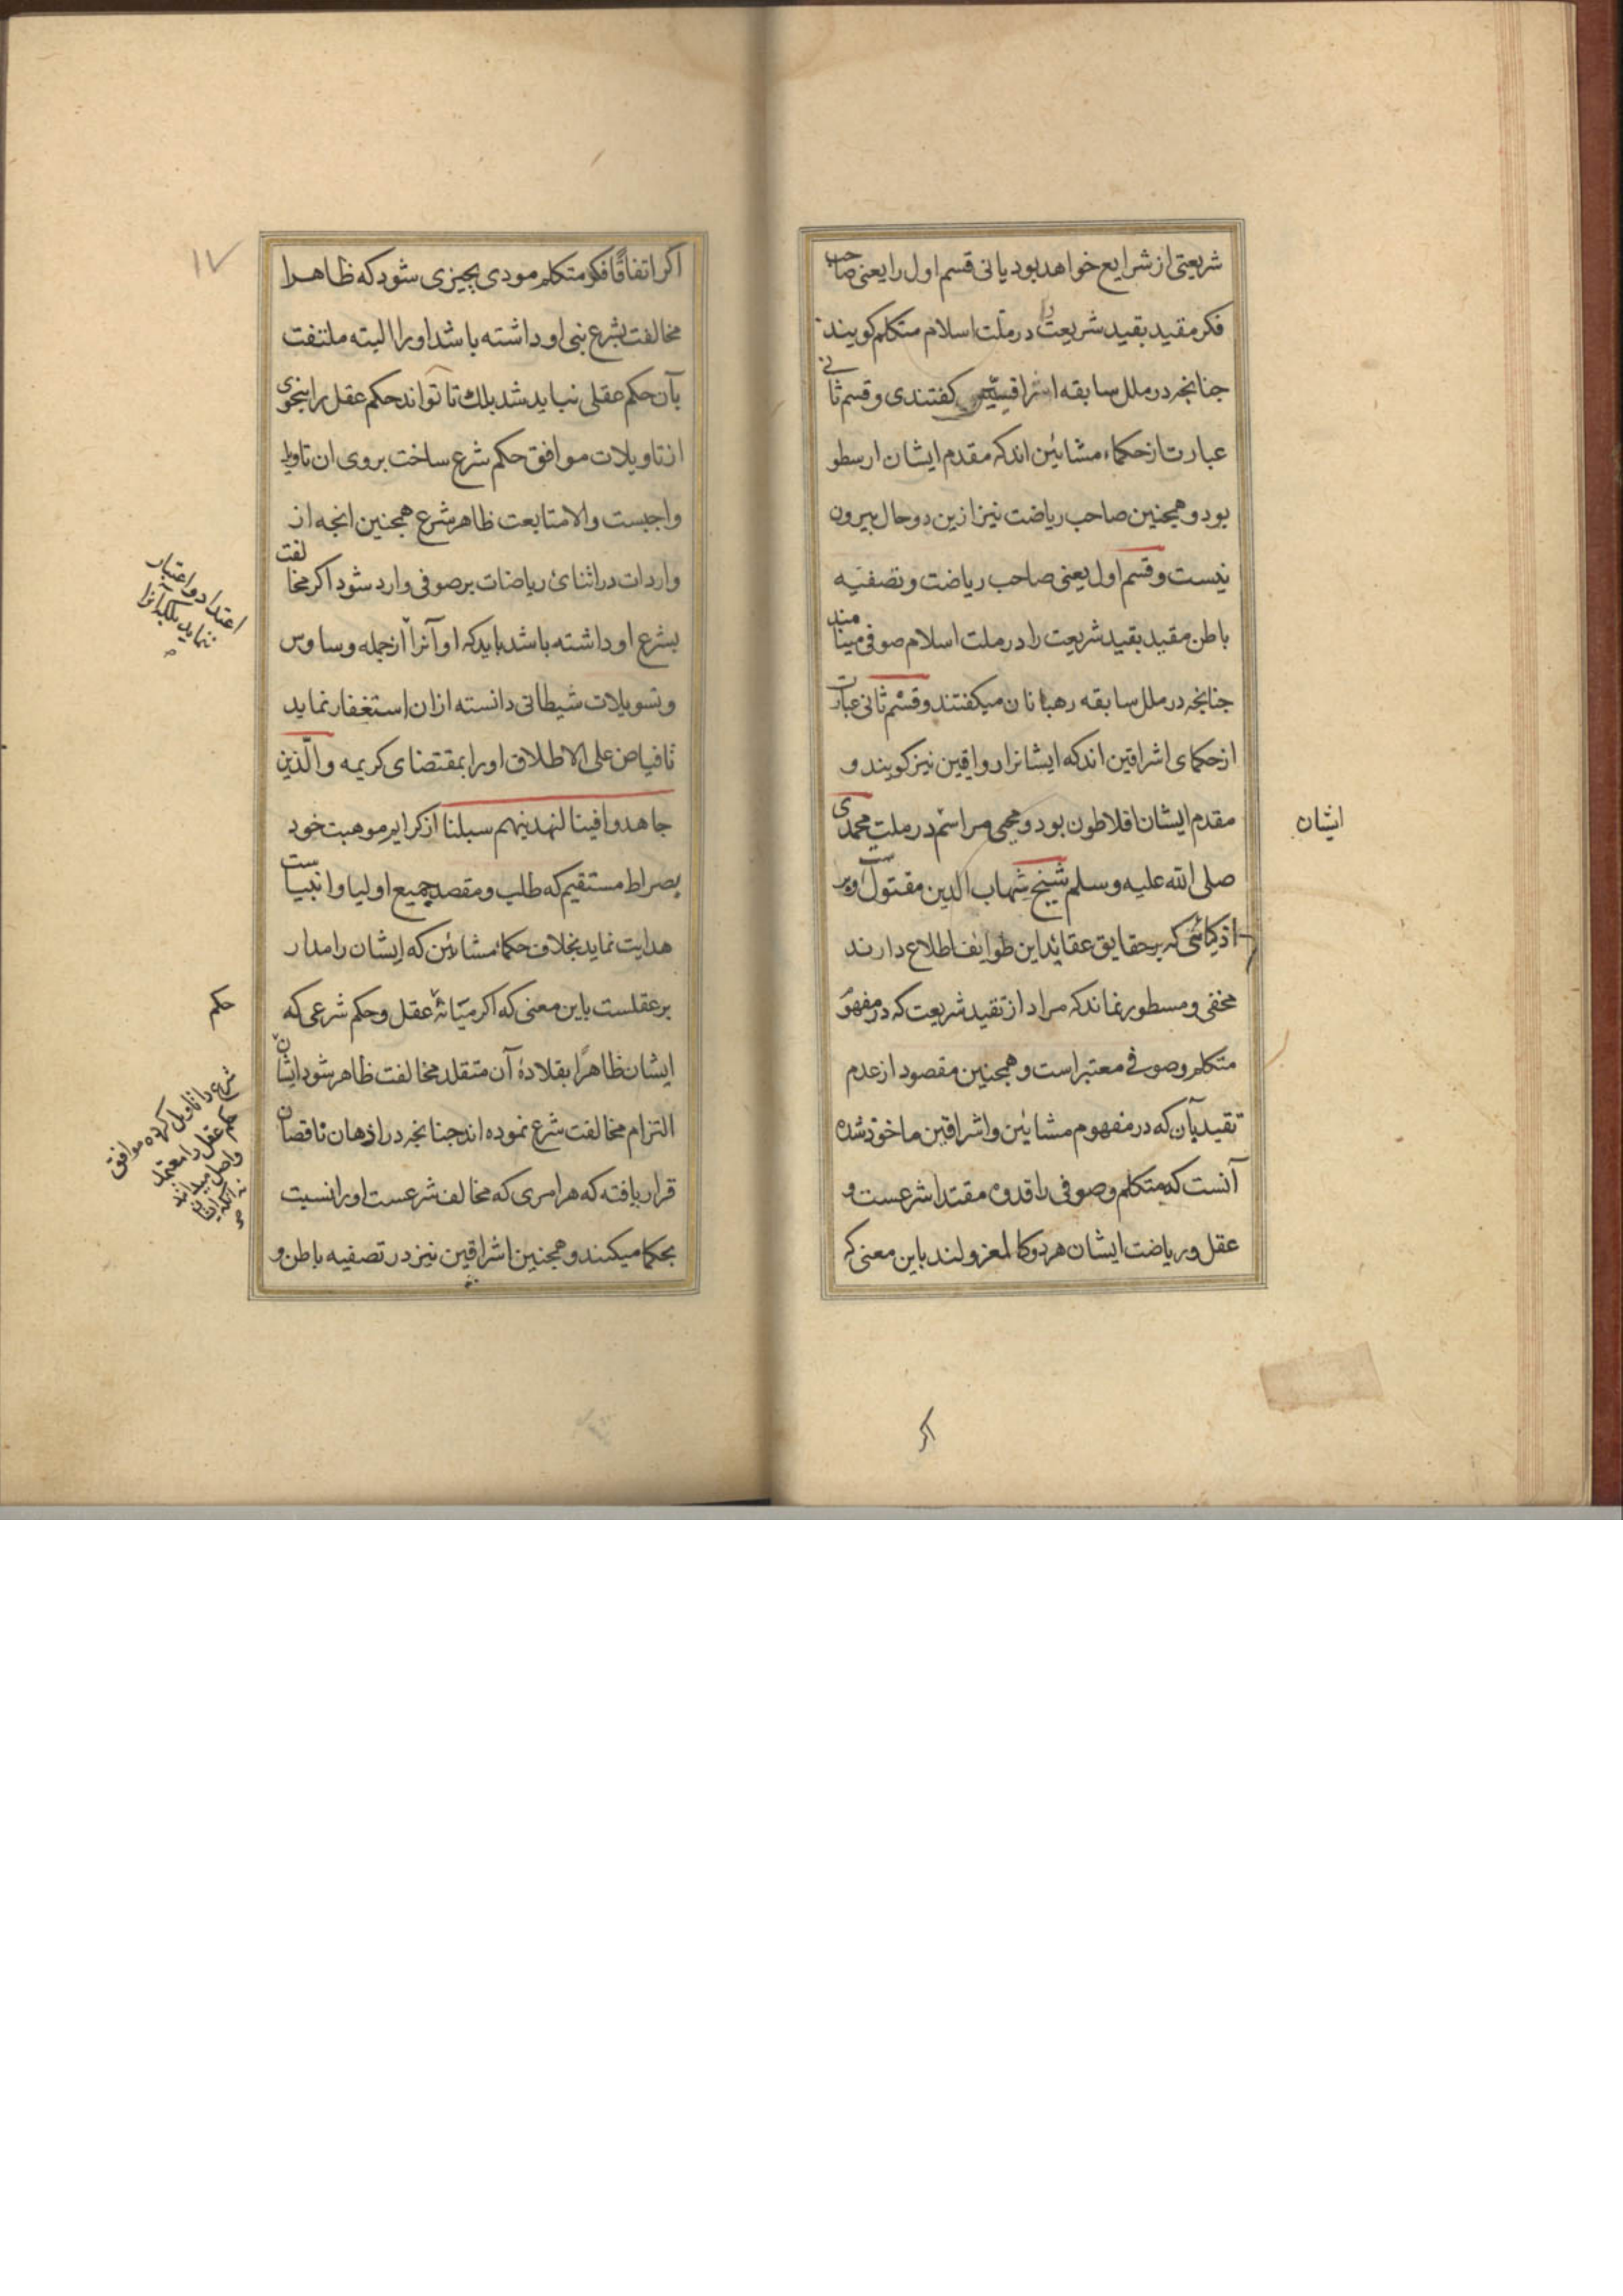 شریعتی از شرایع خواهد بود یا نی قسم اول را یعنی صاحب
فکر مقید بقید شریعت را در ملت اسلام متکلم کویند
جنانجه در ملل سابقه کفتندی و قسم ثانی
عبارت از حکماء مشائین اند که مقدم ایشان ارسطو
بود و همجنین صاحب ریاضت نیز ازین دو حال بیرون
نیست و قسم اول یعنی صاحب ریاضت و تصفیه
باطن مقید بقید شریعت را در ملت اسلام صوفی مینامند
جنانجه در ملل سابقه رهبانان میکفتند و قسم ثانی عبارت
از حکمای اشراقین اند که ایشانرا رواقین نیز کویند و
مقدم ایشان افلاطون بود و محیی مراسم در ملت محمدی
ایشان
صلی الله علیه و سلم شیخ شهاب الدین مقتول است و بر
اذکیائی که بر حقایق عقائد این طوایف اطلاع دارند
مخفی و مسطور نماند که مراد از تقید شریعت که در مفهوم
متکلم و صوفی معتبر است و همجنین مقصود از عدم
تقید بآن که در مفهوم مشائین و اشراقین ماخوذ شده
آنست که متکلم و صوفی را قدوه مقتدا شرعست و
عقل و ریاضت ایشان هر دو کالمعزولند باین معنی که
اکر
١٧
اکر اتفاقًا فکر متکلم مودی بچیزی شود که ظاهرا
مخالفت بشرع نبی او داشته باشد او را البته ملتفت
بآن حکم عقلی نباید شد بلك تا تواند حکم عقل را بنحوی
از تاویلات موافق حکم شرع ساخت بروی ان تاویل
واجبست والا متابعت ظاهر شرع همجنین انجه از
واردات در اثنائ ریاضات بر صوفی وارد شود اکر مخالفت
بشرع او داشته باشد باید که او آنرا از جمله وساوس
اعتداد و اعتبار
ننماید بلکه انرا
و تسویلات شیطانی دانسته ازان استغفار نماید
تا فیاض علی الاطلاق او را بمقتضای کریمه والّذین
جاهدوا فینا لنهدینهم سبلنا از کرایم موهبت خود
بصراط مستقیم که طلب و مقصد جمیع اولیا و انبیاست
هدایت نماید بخلاف حکماء مشائین که ایشان را مدار
بر عقلست باین معنی که اکر میانهٔ عقل و حکم شرعی که
حکم
ایشان ظاهرًا بقلادهٔ آن متقلد مخالفت ظاهر شود ایشان
شرع را تاویل کرده موافق
حکم عقل را معتمد
و اصل میدانند
نه انکه ایشان
التزام مخالفت شرع نموده اند جنانجه در اذهان ناقصان
قرار یافته که هر امری که مخالف شرعست او را نسبت
بحکما میکنند و همجنین اشراقین نیز در تصفیه باطن و